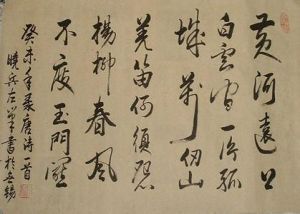 黄河遠上
白雲間一片孤
城萬仞山
羌笛何須怨
楊柳春風
不度玉門關
癸未年录唐詩一首
書於無錫